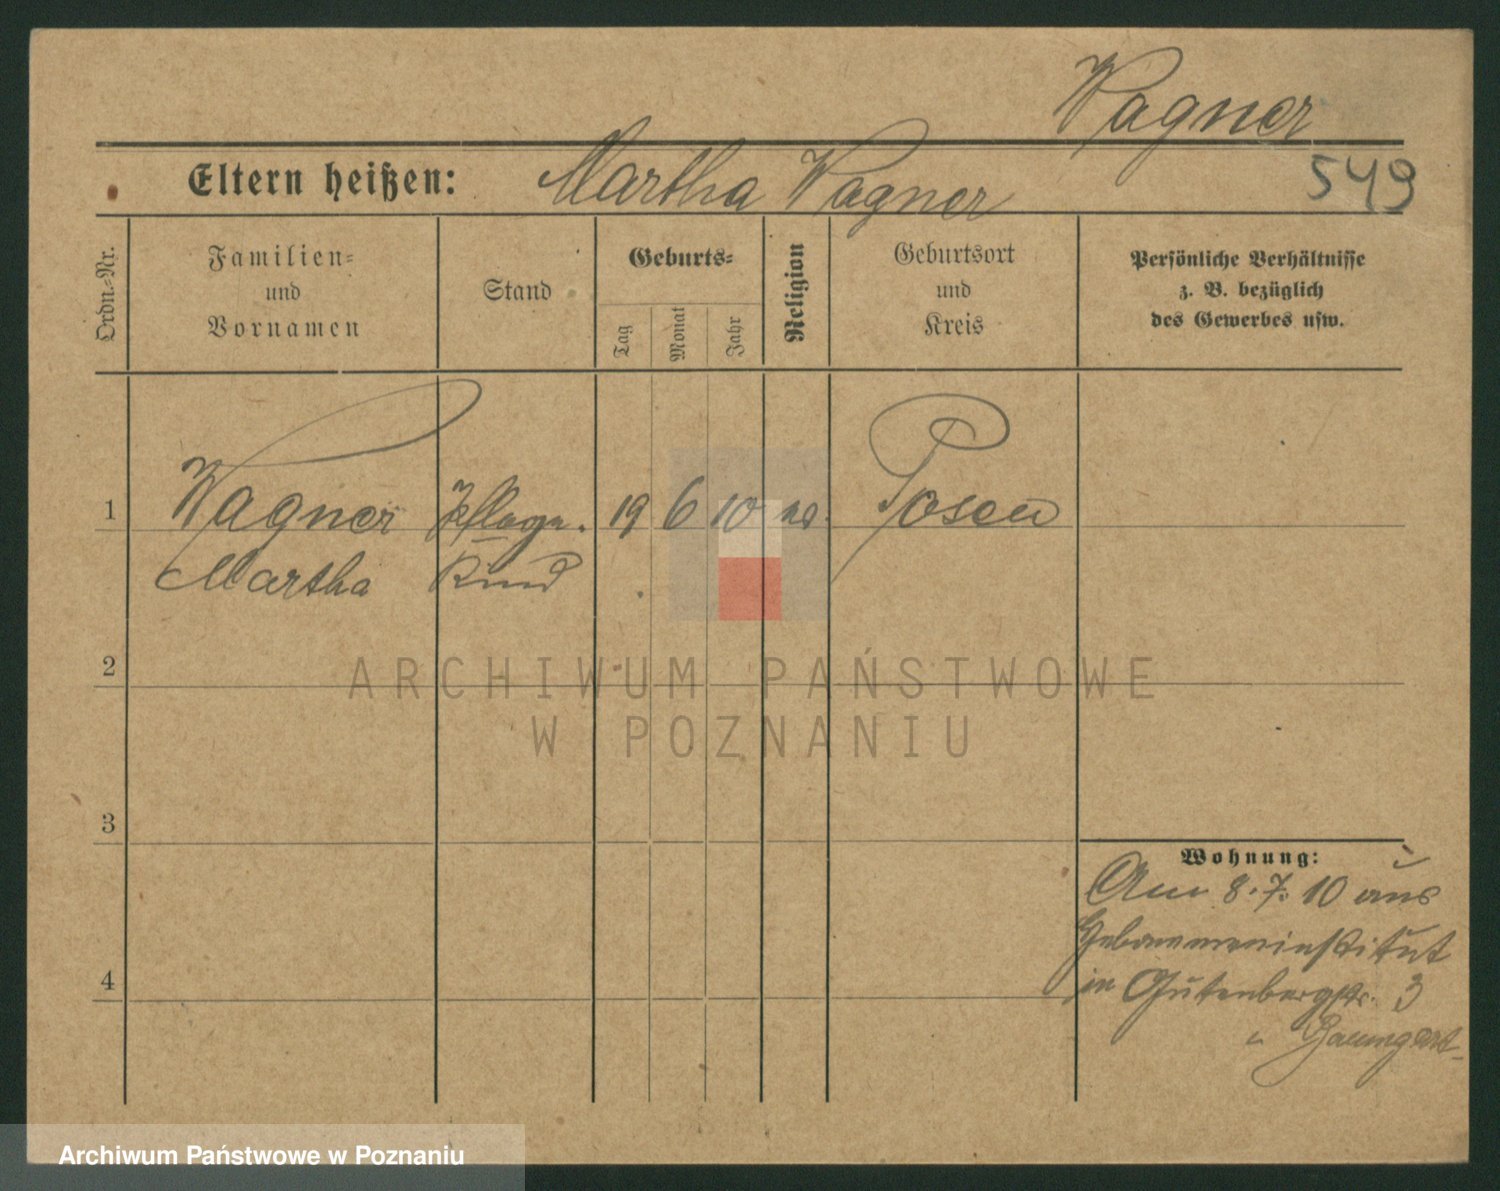 Wagner
Eltern heißen: Martha Wagner
549
Ordn.-Nr.
Familien-
und
Vornamen
Stand
Geburts-
Tag
Monat
Jahr
Religion
Geburtsort
und
Kreis
Persönliche Verhältnisse
z. B. bezüglich
des Gewerbes usw.
1 Wagner Pflege- 19 6 10 Posen
Martha Kind
2
3
4
Wohnung:
Am 8.7.10 aus
Hebammeninstitut
in Gutenbergstr. 3
ARCHIWUM PAŃSTWOWE
W POZNANIU
Archiwum Państwowe w Poznaniu